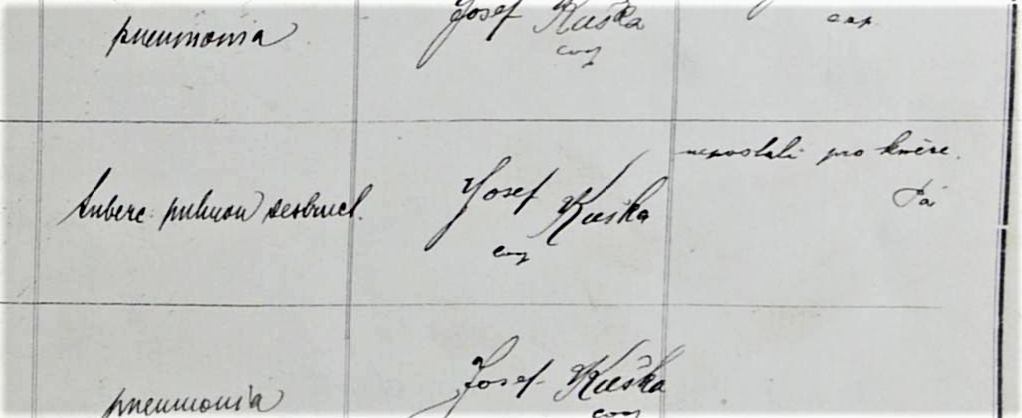 pneumonia
Josef Kuška
coop
cap.
Tuberc. pulmon destruct.
Josef Kuška
coop
neposlali pro kněze.
Pá
pneumonia
Josef Kuška
coop